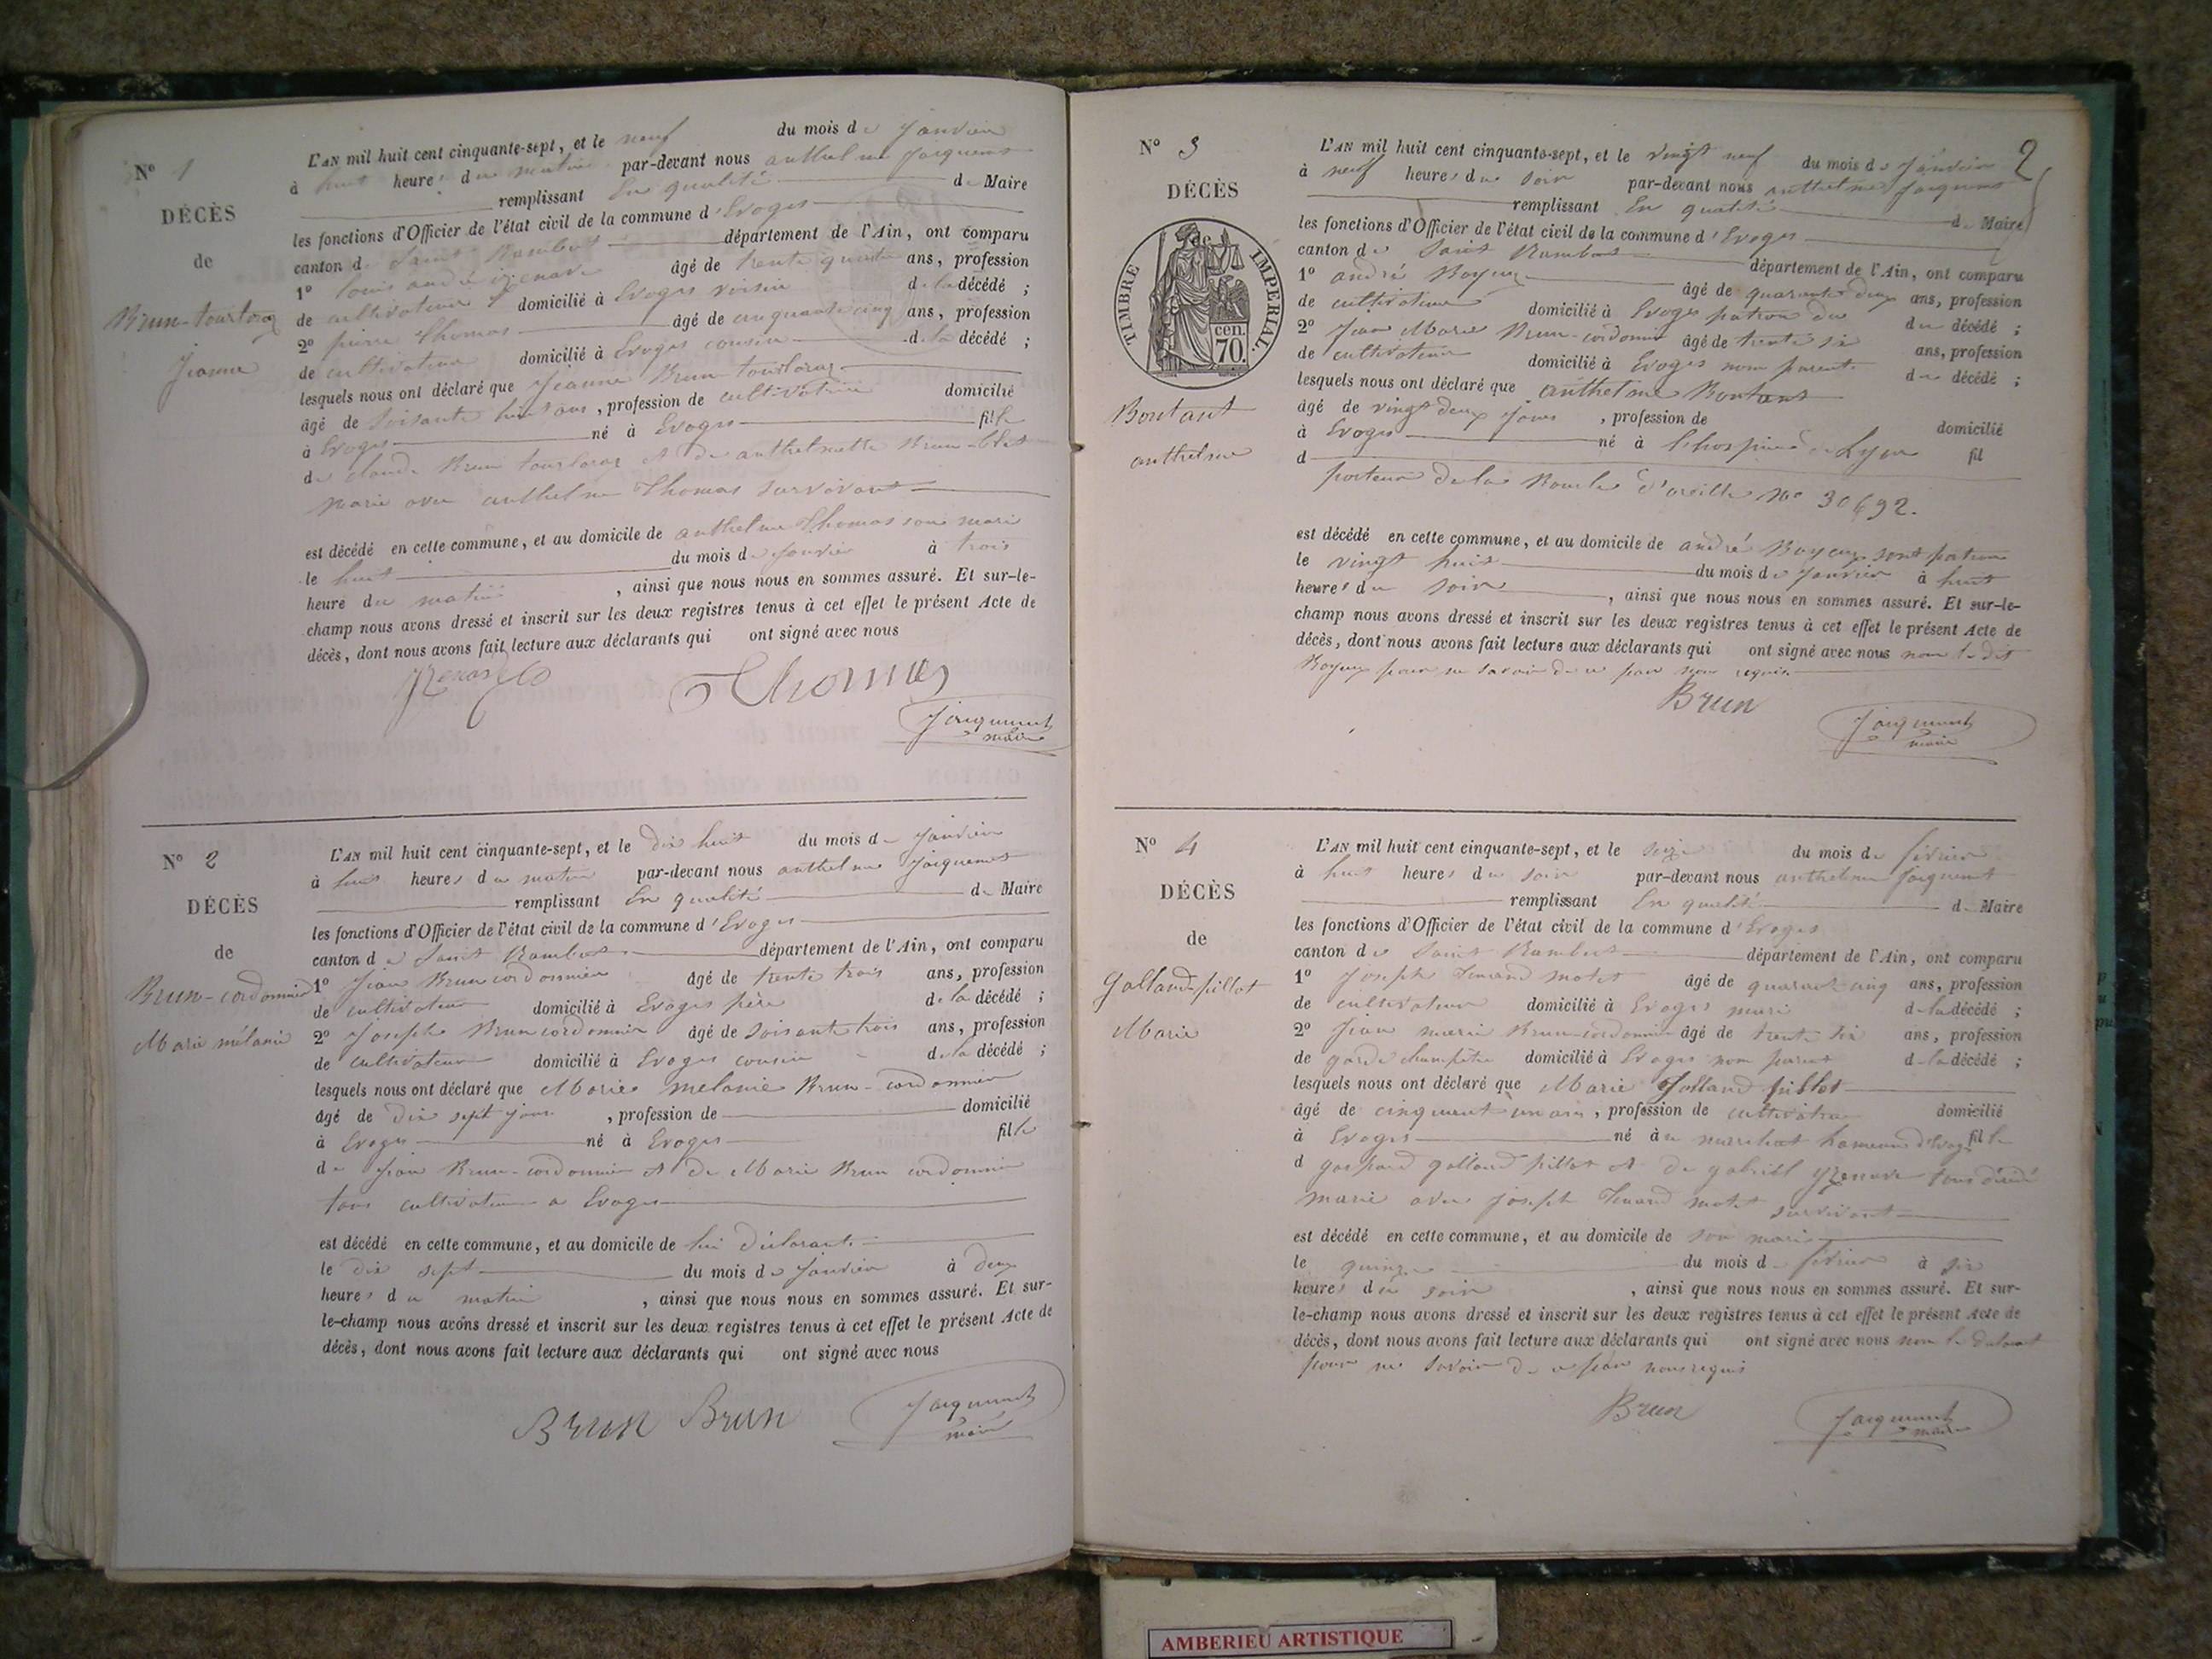 N° 1
DÉCÈS
de
Brun-tourtoraz
Jeanne
L'AN mil huit cent cinquante-sept, et le neuf du mois de Janvier
à huit heures du matin par-devant nous anthelme Jacquemet
remplissant En qualité de Maire
les fonctions d'Officier de l'état civil de la commune d'Evoges
canton de Saint Rambert département de l'Ain, ont comparu
1° louis andré izenave âgé de trente quatre ans, profession
de cultivateur domicilié à Evoges voisin de la décédé ;
2° pierre Thomas âgé de cinquante cinq ans, profession
de cultivateur domicilié à Evoges cousin de la décédé ;
lesquels nous ont déclaré que Jeanne Brun-tourtoraz
âgé de soisante huit ans, profession de cultivatrice domicilié
à Evoges né à Evoges fille
de claude Brun tourtoraz et de anthelmette Brun-blet
marie avec anthelme Thomas survivant
est décédé en cette commune, et au domicile de anthelme Thomas son mari
le huit du mois de Janvier à trois
heure du matin, ainsi que nous nous en sommes assuré. Et sur-le-
champ nous avons dressé et inscrit sur les deux registres tenus à cet effet le présent Acte de
décès, dont nous avons fait lecture aux déclarants qui ont signé avec nous
Thomas
Jacquemet
maire
N° 2
DÉCÈS
de
Brun-cordonnier
Marie mélanie
L'AN mil huit cent cinquante-sept, et le dix huit du mois de Janvier
à huit heures du matin par-devant nous anthelme Jacquemet
remplissant En qualité de Maire
les fonctions d'Officier de l'état civil de la commune d'Evoges
canton de Saint Rambert département de l'Ain, ont comparu
1° Jean Brun cordonnier âgé de trente trois ans, profession
de cultivateur domicilié à Evoges père de la décédé ;
2° Joseph Brun cordonnier âgé de soisante trois ans, profession
de cultivateur domicilié à Evoges cousin de la décédé ;
lesquels nous ont déclaré que Marie melanie Brun-cordonnier
âgé de dix sept jours, profession de domicilié
à Evoges né à Evoges fille
de Jean Brun-cordonnier et de Marie Brun cordonnier
tous cultivateur a Evoges
est décédé en cette commune, et au domicile de lui déclarant
le dix sept du mois de Janvier à deux
heures du matin, ainsi que nous nous en sommes assuré. Et sur-
le-champ nous avons dressé et inscrit sur les deux registres tenus à cet effet le présent Acte de
décès, dont nous avons fait lecture aux déclarants qui ont signé avec nous
Brun Brun
Jacquemet
maire
2
N° 3
DÉCÈS
de
TIMBRE IMPERIAL.
70 cen.
Boutant
anthelme
L'AN mil huit cent cinquante-sept, et le vingt neuf du mois de Janvier
à neuf heures du soir par-devant nous anthelme Jacquemet
remplissant En qualité de Maire
les fonctions d'Officier de l'état civil de la commune d'Evoges
canton de Saint Rambert département de l'Ain, ont comparu
1° andré Royeux âgé de quarante deux ans, profession
de cultivateur domicilié à Evoges patron du du décédé ;
2° Jean Marie Brun-cordonnier âgé de trente six ans, profession
de cultivateur domicilié à Evoges non parent du décédé ;
lesquels nous ont déclaré que anthelme Boutant
âgé de vingt deux jours, profession de domicilié
à Evoges né à l'hospice de Lyon fil
d
porteur de la Boucle d'oreille N° 30692.
est décédé en cette commune, et au domicile de andré Royeux sont patron
le vingt huit du mois de Janvier à huit
heures du soir, ainsi que nous nous en sommes assuré. Et sur-le-
champ nous avons dressé et inscrit sur les deux registres tenus à cet effet le présent Acte de
décès, dont nous avons fait lecture aux déclarants qui ont signé avec nous non le dit
Royeux pour ne savoir de ce par nous requis
Brun
Jacquemet
maire
N° 4
DÉCÈS
de
Golland-pillot
Marie
L'AN mil huit cent cinquante-sept, et le seize du mois de février
à huit heures du soir par-devant nous anthelme Jacquemet
remplissant En qualité de Maire
les fonctions d'Officier de l'état civil de la commune d'Evoges
canton de Saint Rambert département de l'Ain, ont comparu
1° Joseph motet âgé de quarante cinq ans, profession
de cultivateur domicilié à Evoges mari de la décédé ;
2° Jean marie Brun-cordonnier âgé de trente six ans, profession
de garde champêtre domicilié à Evoges non parent de la décédé ;
lesquels nous ont déclaré que Marie Jolland pillot
âgé de cinquante un ans, profession de cultivatrice domicilié
à Evoges né à hameau d'Evoges fille
d gaspard golland pillot et de gabriel yzenave tous décédé
marie avec Joseph motet survivant
est décédé en cette commune, et au domicile de son mari
le quinze du mois de février à six
heures du soir, ainsi que nous nous en sommes assuré. Et sur-
le-champ nous avons dressé et inscrit sur les deux registres tenus à cet effet le présent Acte de
décès, dont nous avons fait lecture aux déclarants qui ont signé avec nous non le
pour ne savoir de ce par nous requis
Brun
Jacquemet
maire
AMBERIEU ARTISTIQUE